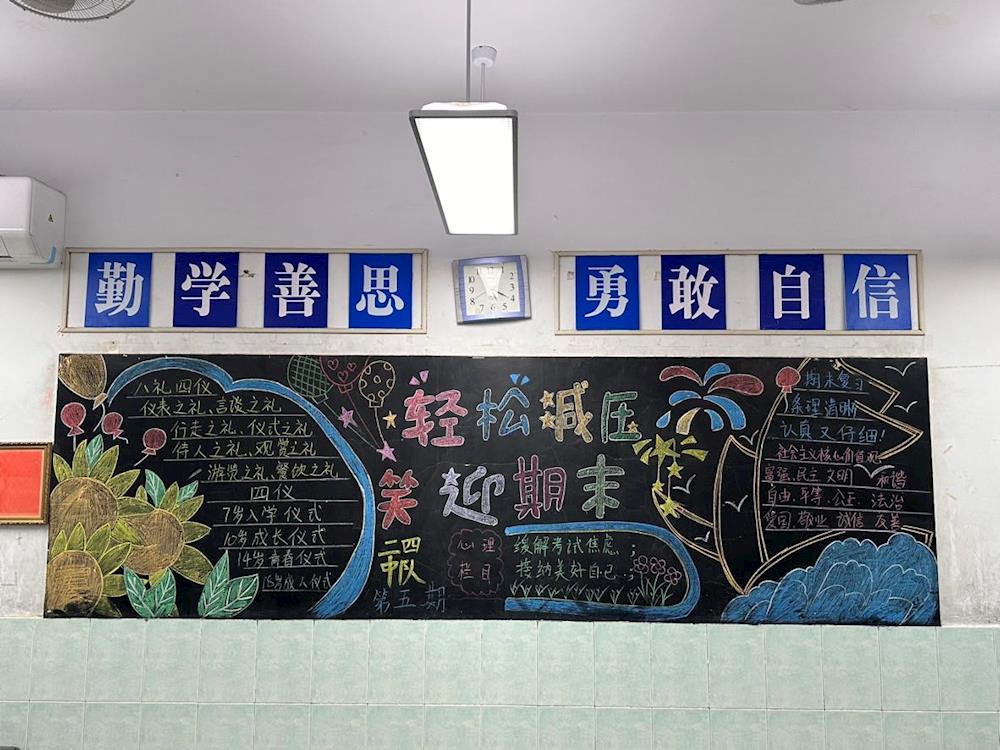 勤学善思
勇敢自信
12
1
2
3
4
5
6
7
8
9
10
八礼四仪
仪表之礼、言谈之礼
行走之礼、仪式之礼
待人之礼、观赏之礼
游览之礼、餐饮之礼
四仪
7岁入学仪式
10岁成长仪式
14岁青春仪式
18岁成人仪式
轻松减压
笑迎期末
二四
中队
第五期
心理
栏目
缓解考试焦虑;
接纳美好自己.;
期末复习
条理清晰
认真又仔细!
社会主义核心价值观
富强、民主 文明 和谐
自由、平等、公正、法治
爱国、敬业 诚信 友善